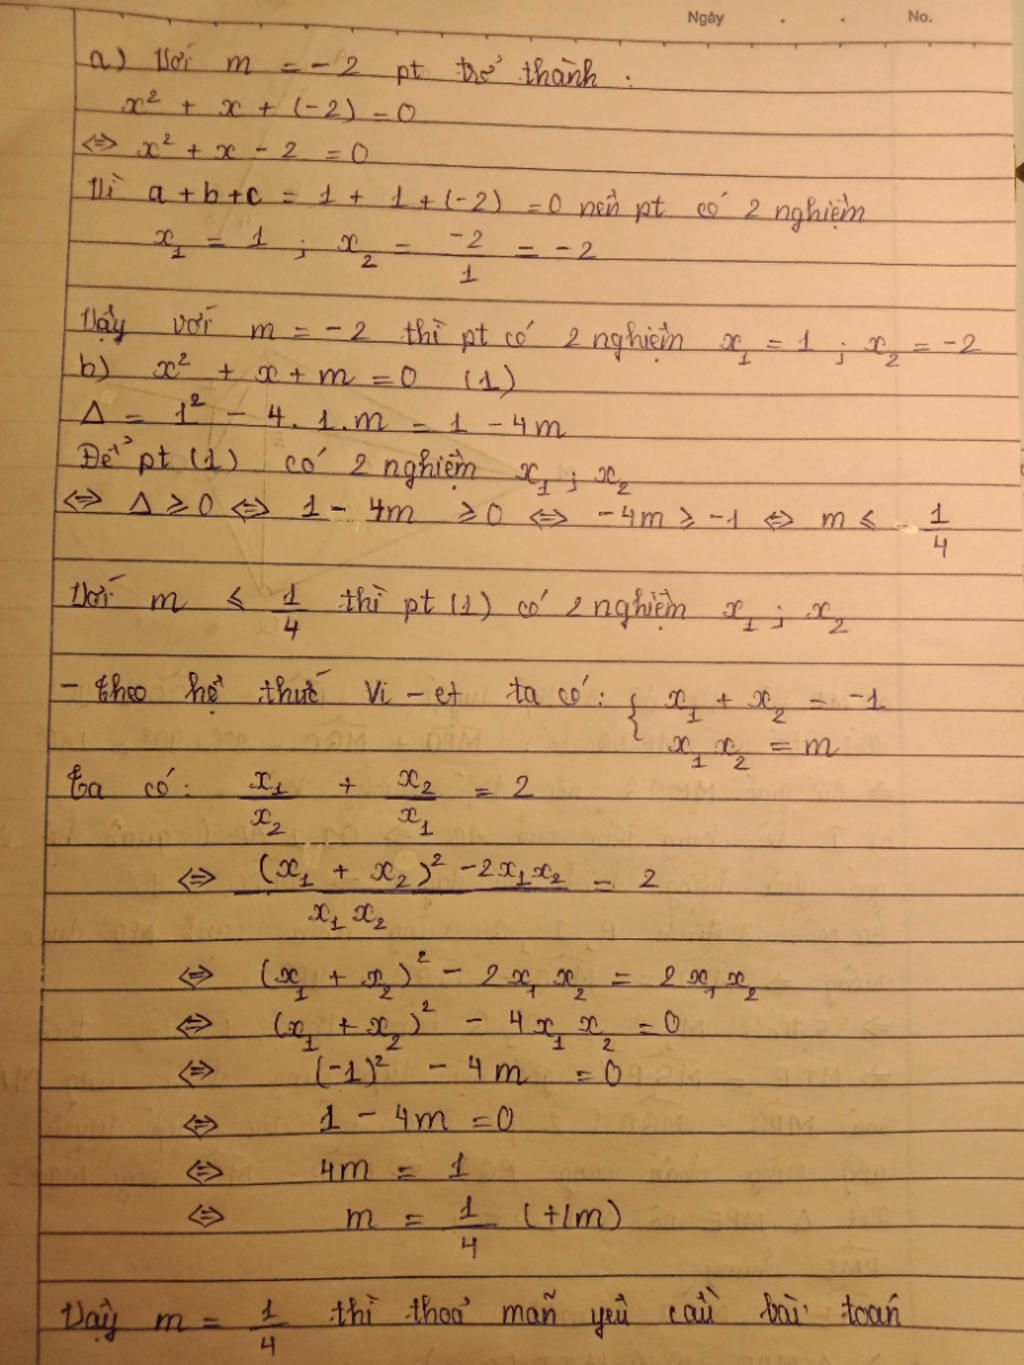 Ngày . . No.
a) Với m = -2 pt trở thành :
x² + x + (-2) = 0
⇔ x² + x - 2 = 0
Vì a + b + c = 1 + 1 + (-2) = 0 nên pt có 2 nghiệm
x₁ = 1 ; x₂ = -2/1 = -2
Vậy với m = -2 thì pt có 2 nghiệm x₁ = 1 ; x₂ = -2
b) x² + x + m = 0 (1)
Δ = 1² - 4. 1. m = 1 - 4m
Để pt (1) có 2 nghiệm x₁ ; x₂
⇔ Δ ⩾ 0 ⇔ 1 - 4m ⩾ 0 ⇔ -4m ⩾ -1 ⇔ m ⩽ 1/4
Với m ⩽ 1/4 thì pt (1) có 2 nghiệm x₁ ; x₂
- theo hệ thức Vi - et ta có : { x₁ + x₂ = -1
x₁ x₂ = m
Ta có : x₁/x₂ + x₂/x₁ = 2
⇔ ((x₁ + x₂)² - 2x₁x₂)/(x₁ x₂) = 2
⇔ (x₁ + x₂)² - 2x₁ x₂ = 2x₁ x₂
⇔ (x₁ + x₂)² - 4x₁ x₂ = 0
⇔ (-1)² - 4m = 0
⇔ 1 - 4m = 0
⇔ 4m = 1
⇔ m = 1/4 (t/m)
Vậy m = 1/4 thì thoả mãn yêu cầu bài toán